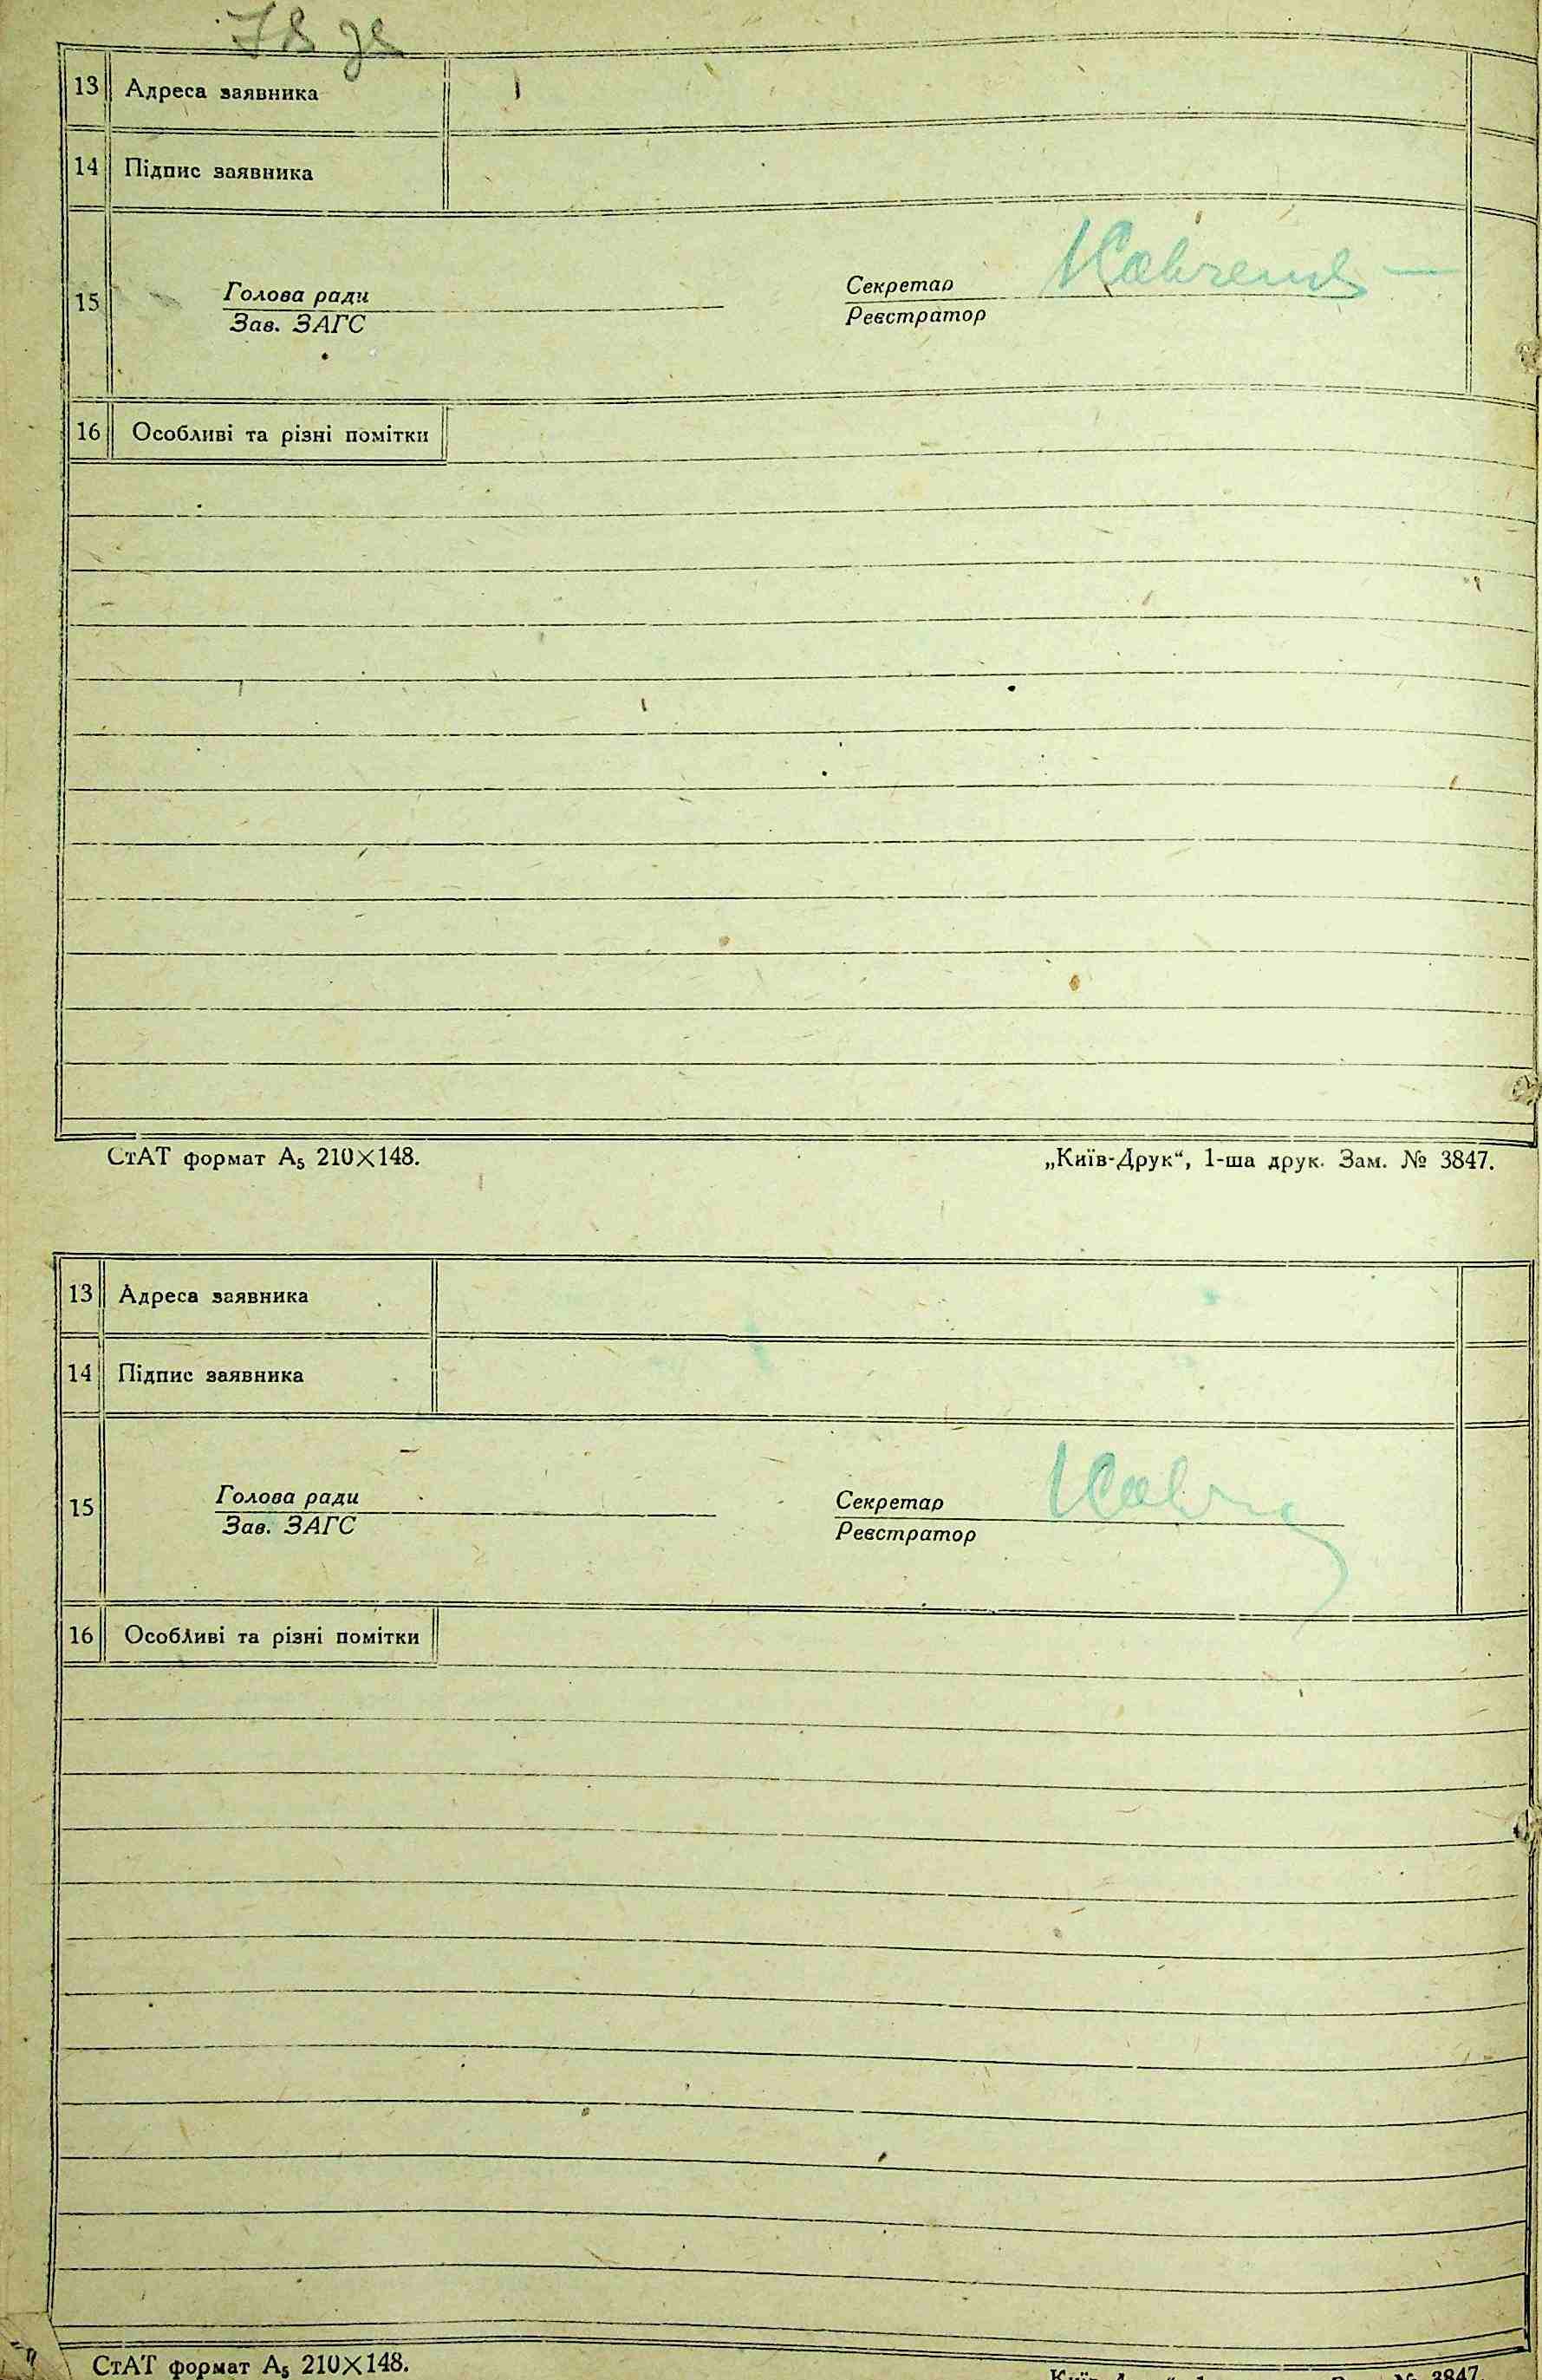 78
13 Адреса заявника
14 Підпис заявника
15 Голова ради
Зав. ЗАГС
Секретар
Реєстратор
16 Особливі та різні помітки
СтАТ формат А₅ 210×148.
„Київ-Друк“, 1-ша друк. Зам. № 3847.
13 Адреса заявника
14 Підпис заявника
15 Голова ради
Зав. ЗАГС
Секретар
Реєстратор
16 Особливі та різні помітки
СтАТ формат А₅ 210×148.
№ 3847.